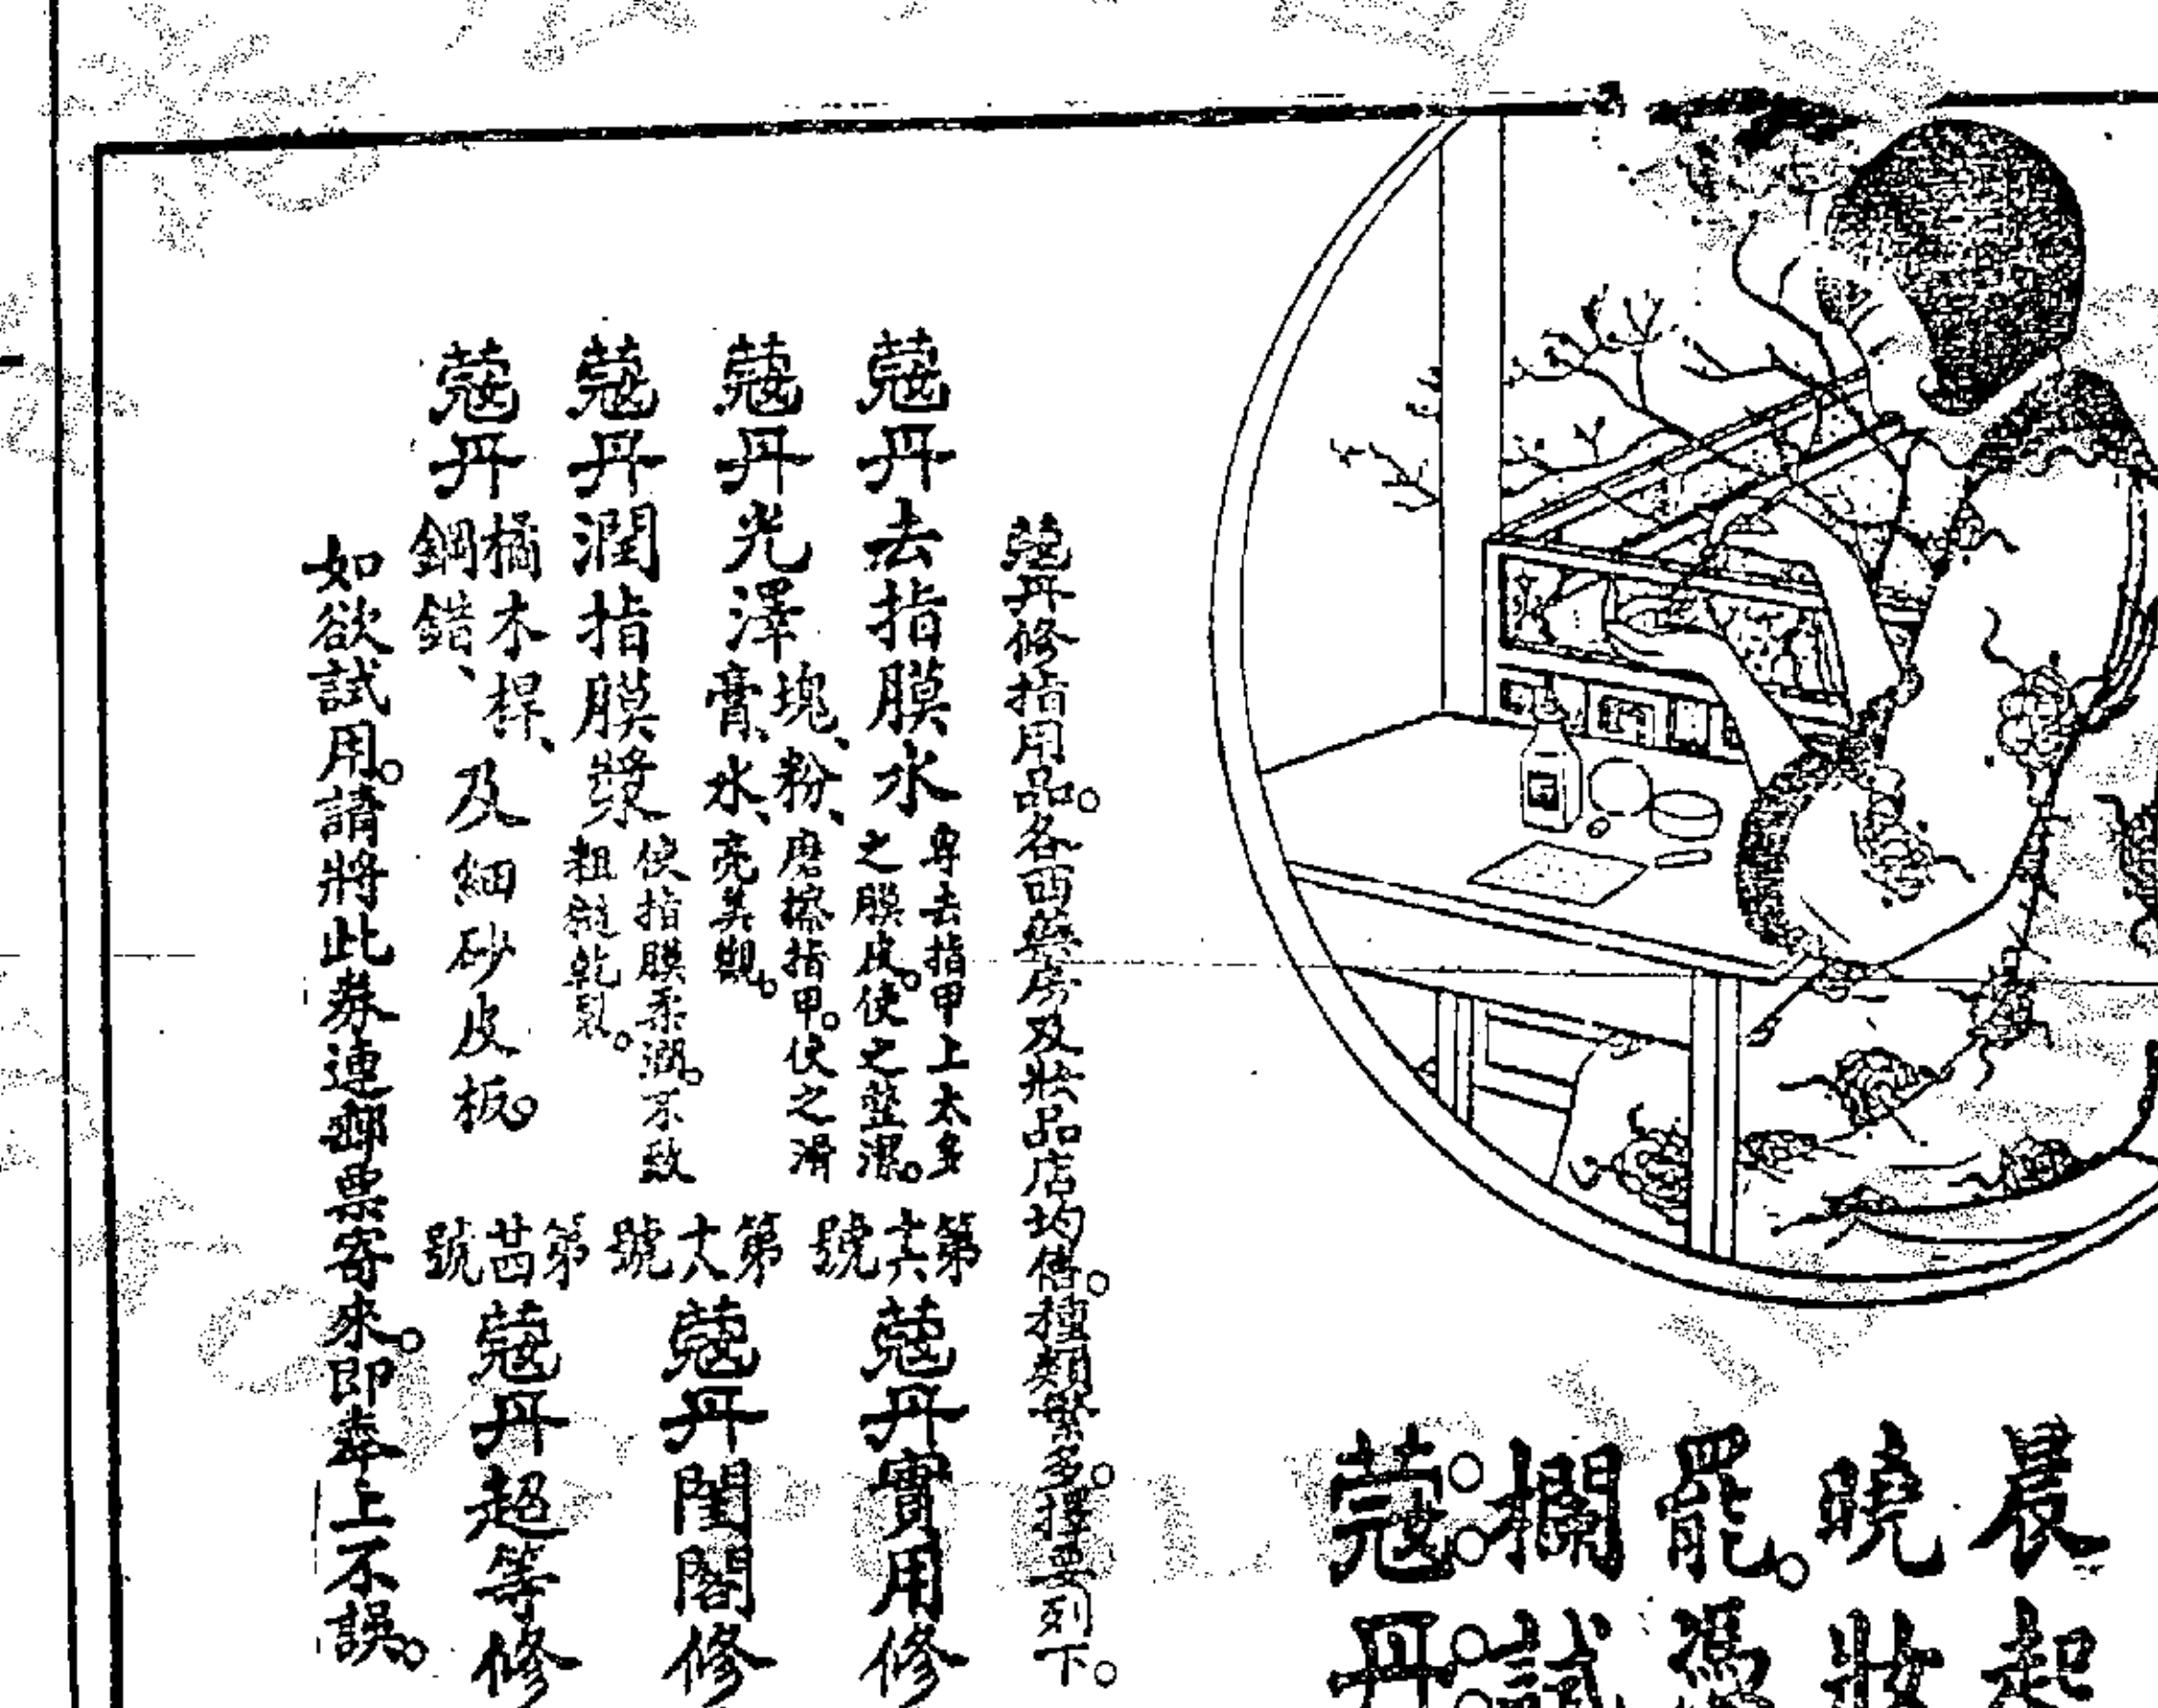 晨起
曉妝
罷。憑
欄。試。
蔻丹
蔻丹修指用品。各西藥房及妝品店均售。種類繁多。擇要列下。
蔻丹去指膜水 專去指甲上太多之膜皮。使之整潔。
蔻丹光澤塊、粉、膏、水、磨擦指甲。使之滑亮美觀。
蔻丹潤指膜漿 使指膜柔潤。不致粗糙乾裂。
蔻丹橘木桿、鋼錯、及細砂皮板。
第十六號 蔻丹實用修
第十八號 蔻丹閨閣修
第廿四號 蔻丹超等修
如欲試用。請將此券連郵票寄來。即奉上不誤。